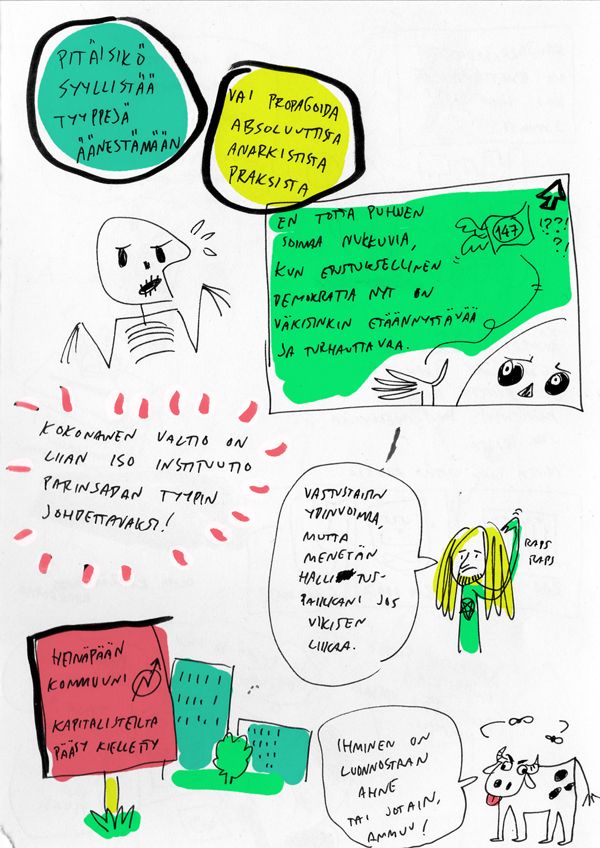 PITÄISIKÖ
SYYLLISTÄÄ
TYYPPEJÄ
ÄÄNESTÄMÄÄN
VAI PROPAGOIDA
ABSOLUUTTISTA
ANARKISTISTA
PRAKSISTA
EN TOTTA PUHUEN
SOIMAA NUKKUVIA,
KUN EDUSTUKSELLINEN
DEMOKRATIA NYT ON
VÄKISINKIN ETÄÄNNYTTÄVÄÄ
JA TURHAUTTAVAA.
147
!??!
?!
KOKONAINEN VALTIO ON
LIIAN ISO INSTITUUTIO
PARINSADAN TYYPIN
JOHDETTAVAKSI!
VASTUSTAISIN
YDINVOIMAA,
MUTTA
MENETÄN
HALLITUS-
PAIKKANI JOS
VIKISEN
LIIKAA.
RAPS
RAPS
HEINÄPÄÄN
KOMMUUNI
KAPITALISTEILTA
PÄÄSY KIELLETTY
IHMINEN ON
LUONNOSTAAN
AHNE
TAI JOTAIN,
AMMUU!